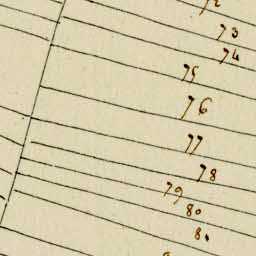 72
73
74
75
76
77
78
79
80